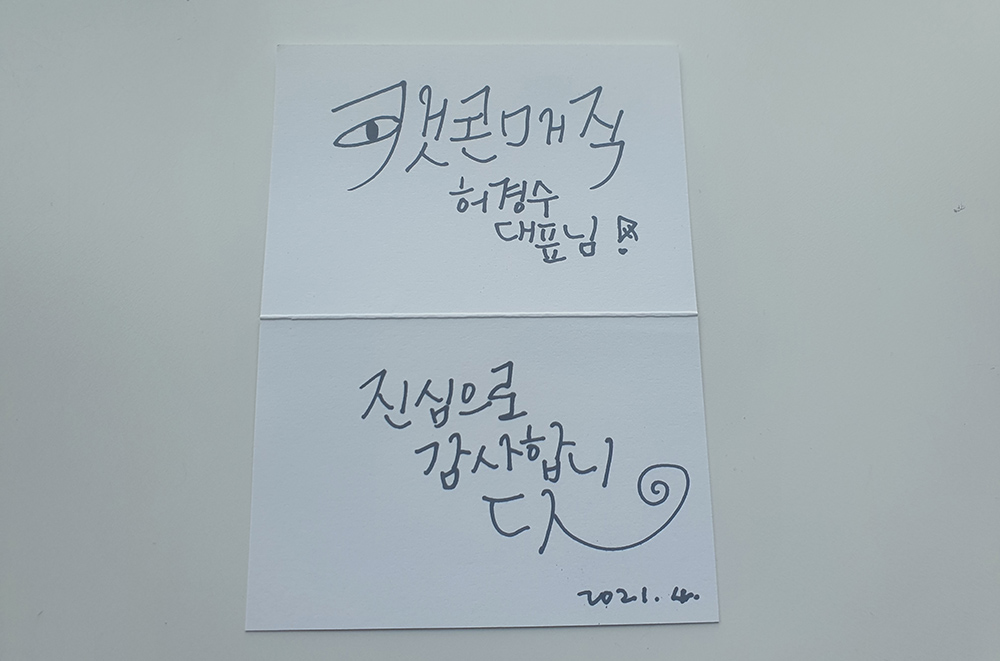 캣콘매직
허경수
대표님!
진심으로
감사합니
다
2021. 4.